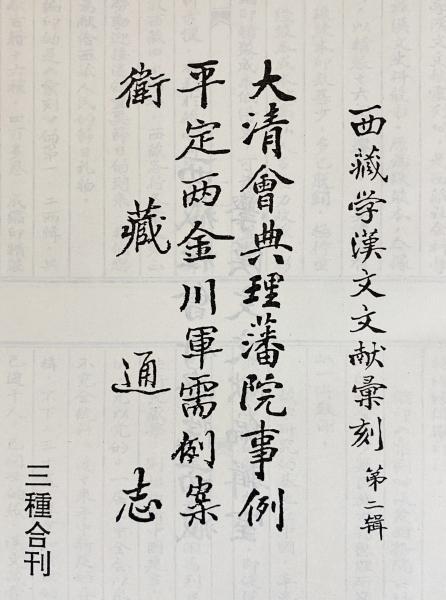 西藏学漢文文献彙刻 第二辑
大清會典理藩院事例
平定两金川軍需例案
衛藏通志
三種合刊